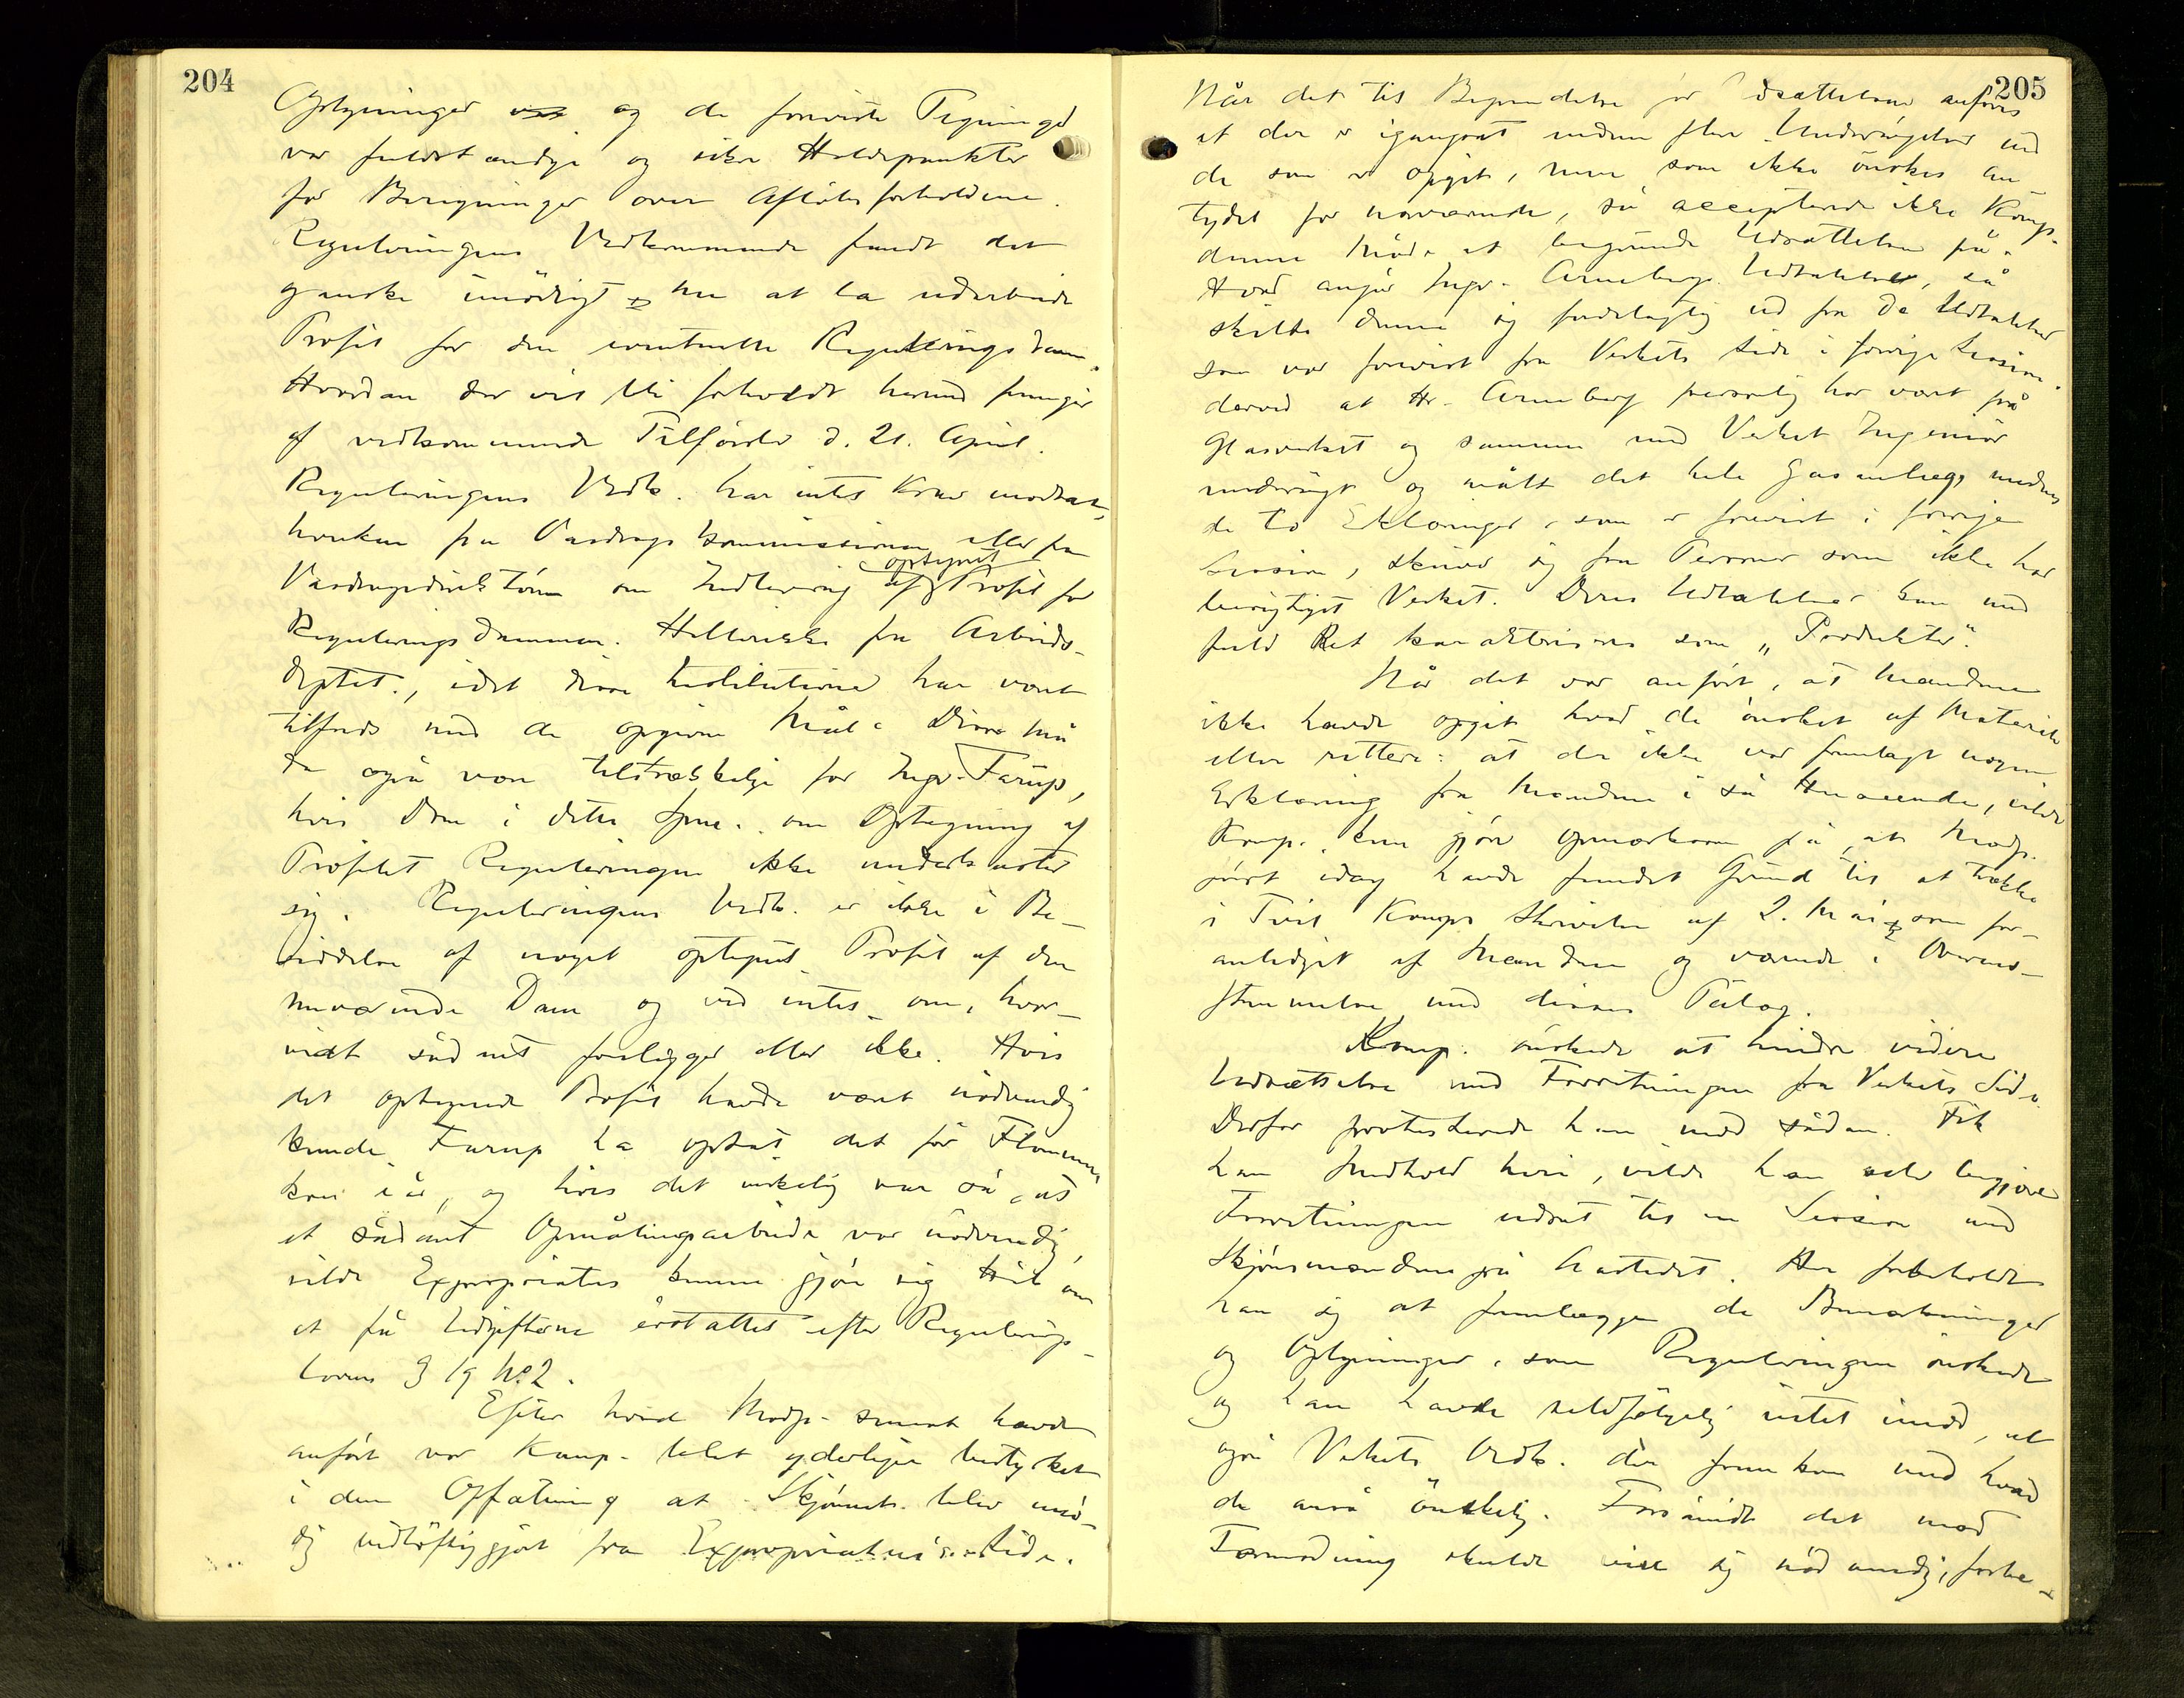 204
Oplysninger og de foreviste Tegninger
var fuldstændige og sikre Holdepunkter
for Beregninger over Afløbsforholdene.
Reguleringens Vedkommende fandt det
ganske unødigt nu at la udarbeide
Profil for den eventuelle Reguleringsdam.
Hvordan der vil bli forholdt hermed fremgår
af vedkommende Tilførsler d. 21. April.
Reguleringens Vedk. har intet Krav modtat,
hverken fra Vasdragskommissionen eller fra
optegnet
Vasdragsdirektøren om Indlevering af Profil for
Reguleringsdammen. Hellerikke fra Arbeids-
deptet., idet disse Institutioner har været
tilfreds med de opgivne Mål. Disse må
da også være tilstrækkelige for Ingv. Farup,
hvis Dom i dette Spm. om Optegning af
Profilet Reguleringen ikke underkaster
sig. Reguleringens Vedk. er ikke i Be-
siddelse af noget optegnet Profil af den
nuværende Dam og ved intet om, hvor-
vidt sådant foreligger eller ikke. Hvis
det optegnede Profil havde været nødvendig
kunde Farup ha optat det før Flommen
kom iår, og hvis det virkelig var så, at
et sådant Opmålingsarbeide var nødvendig,
vilde Expropriaten kunne gjøre sig Håb om
at få Udgifterne erstattet efter Regulerings-
lovens § 19 No 2.
Efter hvad Modp. senest havde
anført var Komp. blet yderligere bestyrket
i den Opfatning at Skjønnet blev unø-
dig vidtløftiggjort fra Expropriatens Side.
205
Når det til Begrundelse for Udsættelsen anføres
at der er igangsat endnu flere Undersøgelser end
de som er opgit, men som ikke ønskes an-
tydet for nærværende, så accepterede ikke Komp.
denne Måde at begrunde Udsættelsen på.
Hvad angår Ingv. Arneberg Udtalelse, så
skilte denne sig fordelagtig ud fra de Udtalelser
som var forevist fra Verkets Side i forrige Session
derved at Hr. Arneberg personlig har vært på
Glasverket og sammen med Verkets Ingeniør
undersøgt og målt det hele Gasanlæg, medens
de to Erklæringer, som er forevist i forrige
Session, skriver sig fra Personer som ikke har
besigtiget Verket. Deres Udtalelser kan med
fuld Ret karakteriseres som „Produkter“.
Når det var anført, at Mændene
ikke havde opgit hvad de ønsket af Materiale
eller rettere: at der ikke var fremlagt nogen
Erklæring fra Mændene i så Henseende, vilde
Komp. kun gjøre opmærksom på, at Modp.
først idag havde fundet Grund til at trække
i Tvil Komps Skrivelse af 2. Mai, som for-
anlediget af Mændene og værende i Overens-
stemmelse med disses Pålæg.
Komp. ønskede at hindre videre
Udsættelse med Forretningen fra Verkets Side.
Derfor protesterede han mod sådan. Fik
han Medhold heri, vilde han selv begjære
Forretningen udsat til en Session med
Skjønsmændene på Aastedet. Her forbeholdt
han sig at fremlægge de Bemærkninger
og Oplysninger, som Reguleringen ønskede
og han havde selvfølgelig intet imod, at
også Verkets Vedk. der fremkom med hvad
de anså ønskelig. Forsåvidt det mod
Formodning skulde vise sig nødvendig, forbe-